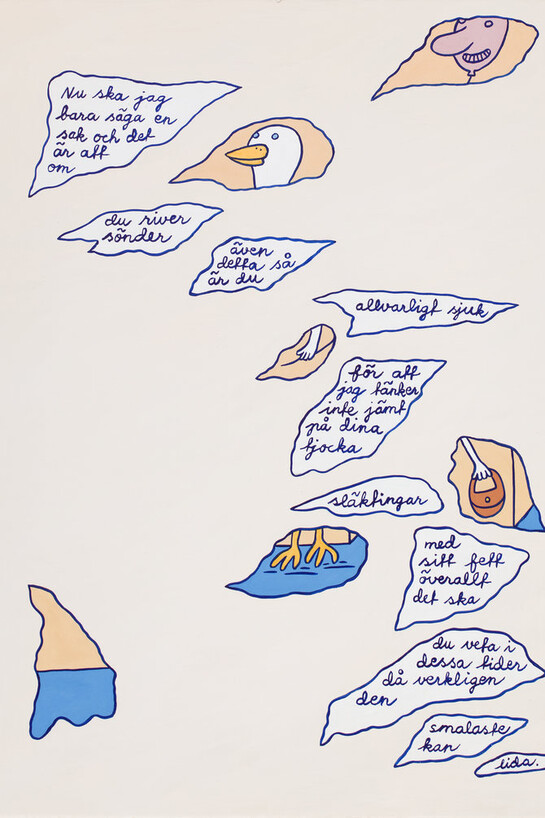 Nu ska jag
bara säga en
sak och det
är att
om
du river
sönder
även
detta så
är du
allvarligt sjuk
för att
jag tänker
inte jämt
på dina
tjocka
släktingar
med
sitt fett
överallt
det ska
du veta i
dessa tider
då verkligen
den
smalaste
kan
lida.